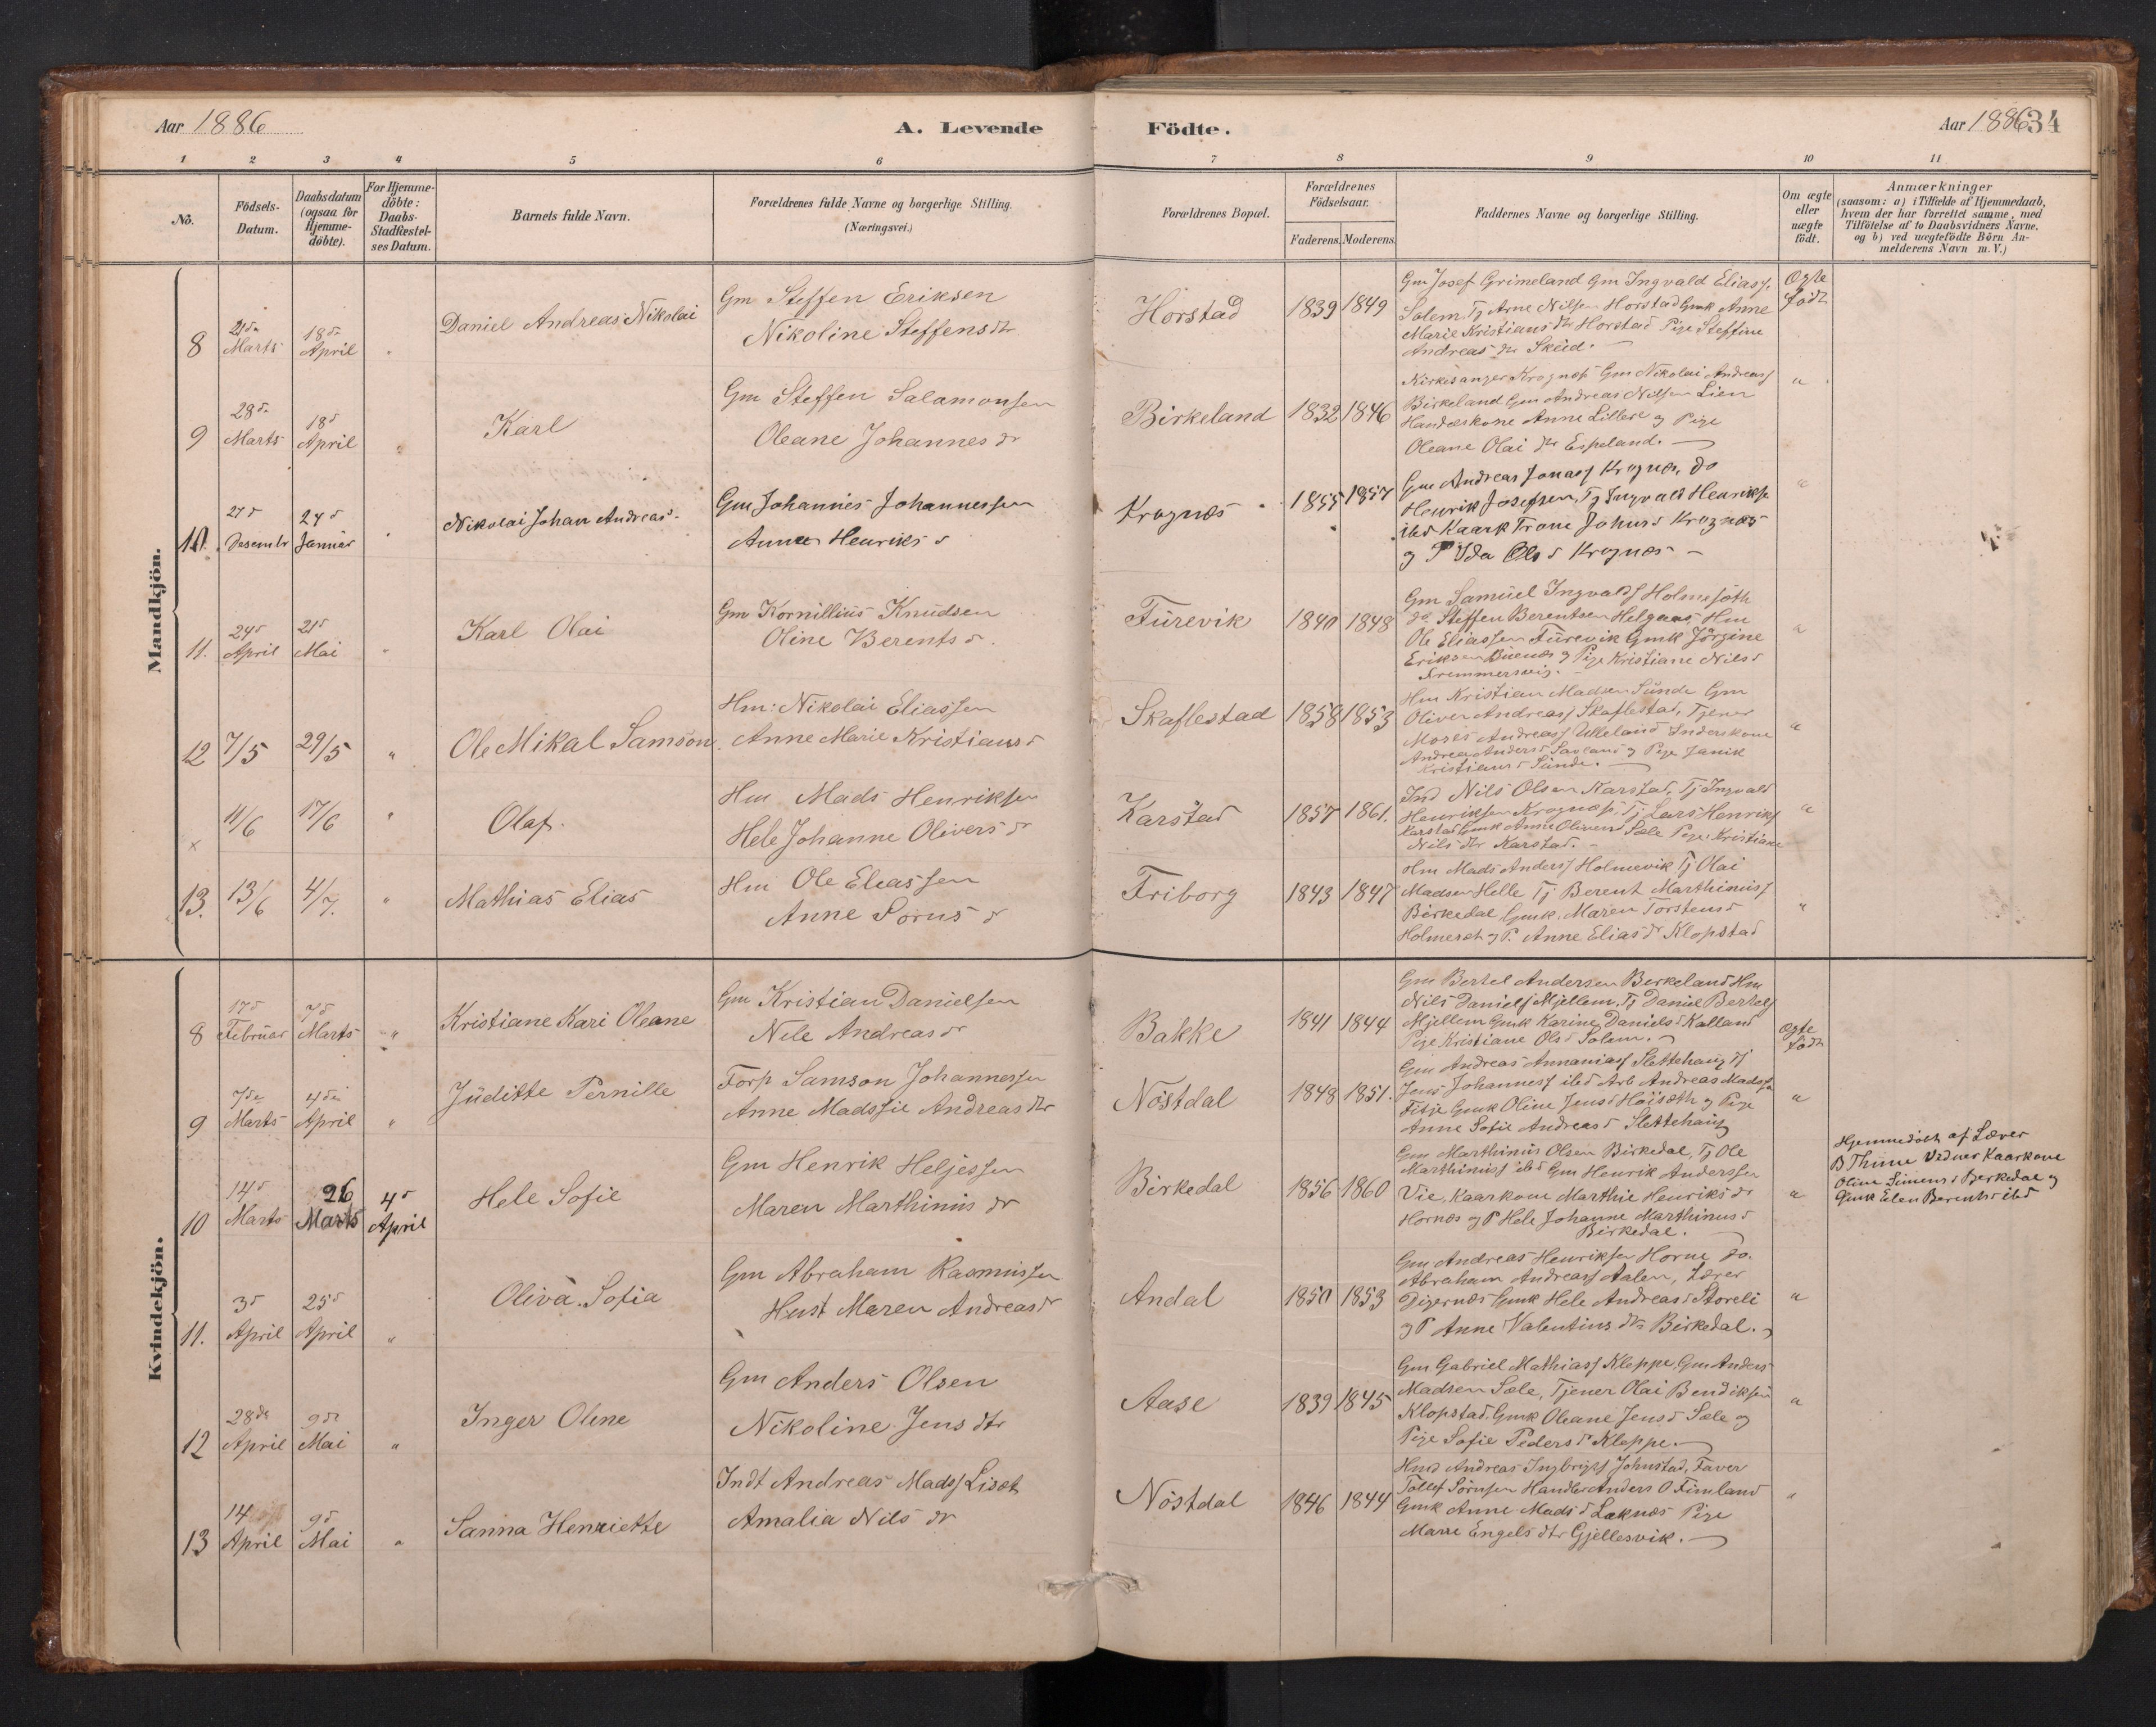 Aar 1886
A. Levende
Födte.
Aar 1886
34
1 2 3 4 5 6 7 8 9 10 11
No.
Födsels-
Datum.
Daabsdatum
(ogsaa for
Hjemme-
döbte).
For Hjemme-
döbte:
Daabs-
Stadfæstel-
ses Datum.
Barnets fulde Navn.
Forældrenes fulde Navne og borgerlige Stilling.
(Næringsvei.)
Forældrenes Bopæl.
Forældrenes
Födselsaar.
Faderens. Moderens.
Faddernes Navne og borgerlige Stilling.
Om ægte
eller
uægte
födt.
Anmærkninger
(saasom: a) i Tilfælde af Hjemmedaab,
hvem der har forrettet samme, med
Tilföielse af to Daabsvidners Navne.
og b) ved uægtefödte Börn An-
melderens Navn m. V.)
Mandkjön.
8
21de
Marts
18de
April
"
Daniel Andreas Nikolai
Gm Steffen Eriksen
Nikoline Steffensdtr
Horstad
1839 1849
Gm Josef Grimeland Gm Ingvald Eliass.
Solem Tj Arne Nilsen Horstad Gmk Anne
Marie Kristians dtr Horstad Pige Steffine
Andreas dtr Skeid.
Ægte
födt
9
28de
Marts
18d
April
"
Karl
Gm Steffen Salamonsen
Oleane Johannes dr
Birkeland
1832 1846
Kirkesanger Krognæs Gm Nikolai Andreass
Birkeland Gm Andreas Nilsen Lien
Handelskone Anne Lillere og Pige
Oleane Olai dtr Espeland.
"
10
27d
Desembr
24d
Januar
"
Nikolai Johan Andreas
Gm Johannes Johannessen
Anne Henriks d
Krognæs
1855 1857
Gm Andreas Jonass Krognæs, do
Henrik Josefsen, Tj Ingvald Henriksen
ibd Kaark Trone Johns d Krognæs
og P Ida Ols d Krognæs
"
11.
24d
April
21d
Mai
"
Karl Olai
Gm Kornillius Knudsen
Oline Berents d.
Furevik
1840 1848
Gm Samuel Ingvalds Holmesöth
do Steffen Berentsen Helganes, Hm
Ole Eliassen Furevik Gmk Jörgine
Eriksen Buenes og Pige Kristiane Nils d
"
12
7/5
29/5
"
Ole Mikal Samson
Hm: Nikolai Eliassen
Anne Marie Kristians d
Skaflestad
1858 1853
Hm Kristian Madsen Sunde Gm
Oliver Andreass Skaflestad, Tjener
Moses Andreass Ukeland Inderskone
Andrea Anders d Savland og Pige Janik
Kristians d Sunde.
"
x
11/6
17/6
"
Olaf.
Hm Mads Henriksen
Hele Johanne Olivers d
Karstad
1857 1861.
Ind Nils Olsen Karstad, Tj Ingvald
Henriksen Krognæs, Tj Lars Henriks
Karstad Gmk Anne Olivers d Sæle Pige Kristiane
Nils dtr Karstad.
"
13.
13/6
4/7.
"
Mathias Elias
Hm Ole Eliassen
Anne Sorens d
Friborg
1843 1847
Hm Mads Anderss Holmevik Tj Olai
Madsen Helle Tj Berent Marthinuss
Birkedal Gmk. Maren Torstens d
Holmeset og P. Anne Elias dr Klopstad
"
Kvindekjön.
8
17d
Februar
7d
Marts
"
Kristiane Kari Oleane
Gm Kristian Danielsen
Nele Andreas dr
Bakke
1841 1844
Gm Bertel Andersen Berkeland Hm
Nils Daniels Mjellem, Tj Daniel Bertels
Mjellem Gmk Karine Daniels d Kalland
Pige Kristiane Ols d Solem.
Ægte
födt
9
7de
Marts
4de
April
"
Juditte Pernille
Forp Samson Johannessen
Anne Madssie Andreas dtr
Nöstdal
1848 1851.
Gm Andreas Annaniass Slettehaug Tj
Jens Johanness ibd Arb Andreas Madssen
Fitje Gmk Oline Jens d Höisæth og Pige
Anne Sofie Andreas d Slettehaug
"
10
14d
Marts
26
Marts
4d
April
Hele Sofie
Gm Henrik Heljessen
Maren Marthinus dr
Birkedal
1856 1860
Gm Marthinus Olsen Birkedal, Tj Ole
Marthinuss ibd Gm Henrik Anderssen
Vie, Kaarkone Marthie Henriks dr
Hornæs og P Hele Johanne Marthinus d
Birkedal.
"
Hjemmedöbt af Lærer
B Thune Vidner Kaarkone
Oline Simens d Berkedal og
Gmk Elen Berents d ibd
11.
3d
April
25d
April
"
Oliva Sofia
Gm Abraham Rasmussen
Hust Maren Andreas dr
Andal
1850 1853
Gm Andreas Henriksen Horne do.
Abraham Andreass Aalen, Lærer
Digernæs Gmk Hele Andreas d Storeli
og P Anne Valentins dtr Birkedal.
"
12
28de
April
9de
Mai
"
Inger Oline
Gm Anders Olsen
Nikoline Jens dtr
Aase
1839 1845
Gm Gabriel Mathiass Kleppe, Gm Anders
Madsen Sæle, Tjener Olai Bendiksen
Klopstad, Gmk Oleane Jens d Sæle og
Pige Sofie Peders d Kleppe.
"
13
14
April
9d
Mai
"
Sanna Henriette
Indt Andreas Madss Liset
Amalia Nils dr
Nöstdal
1846 1844
Hmd Andreas Ingbrigts Johnstad, Faver
Tollef Sörnsen Handler Anders O Fimland
Gmk Anne Mads d Laknæs Pige
Marie Engels dtr Gjellesvik.
"